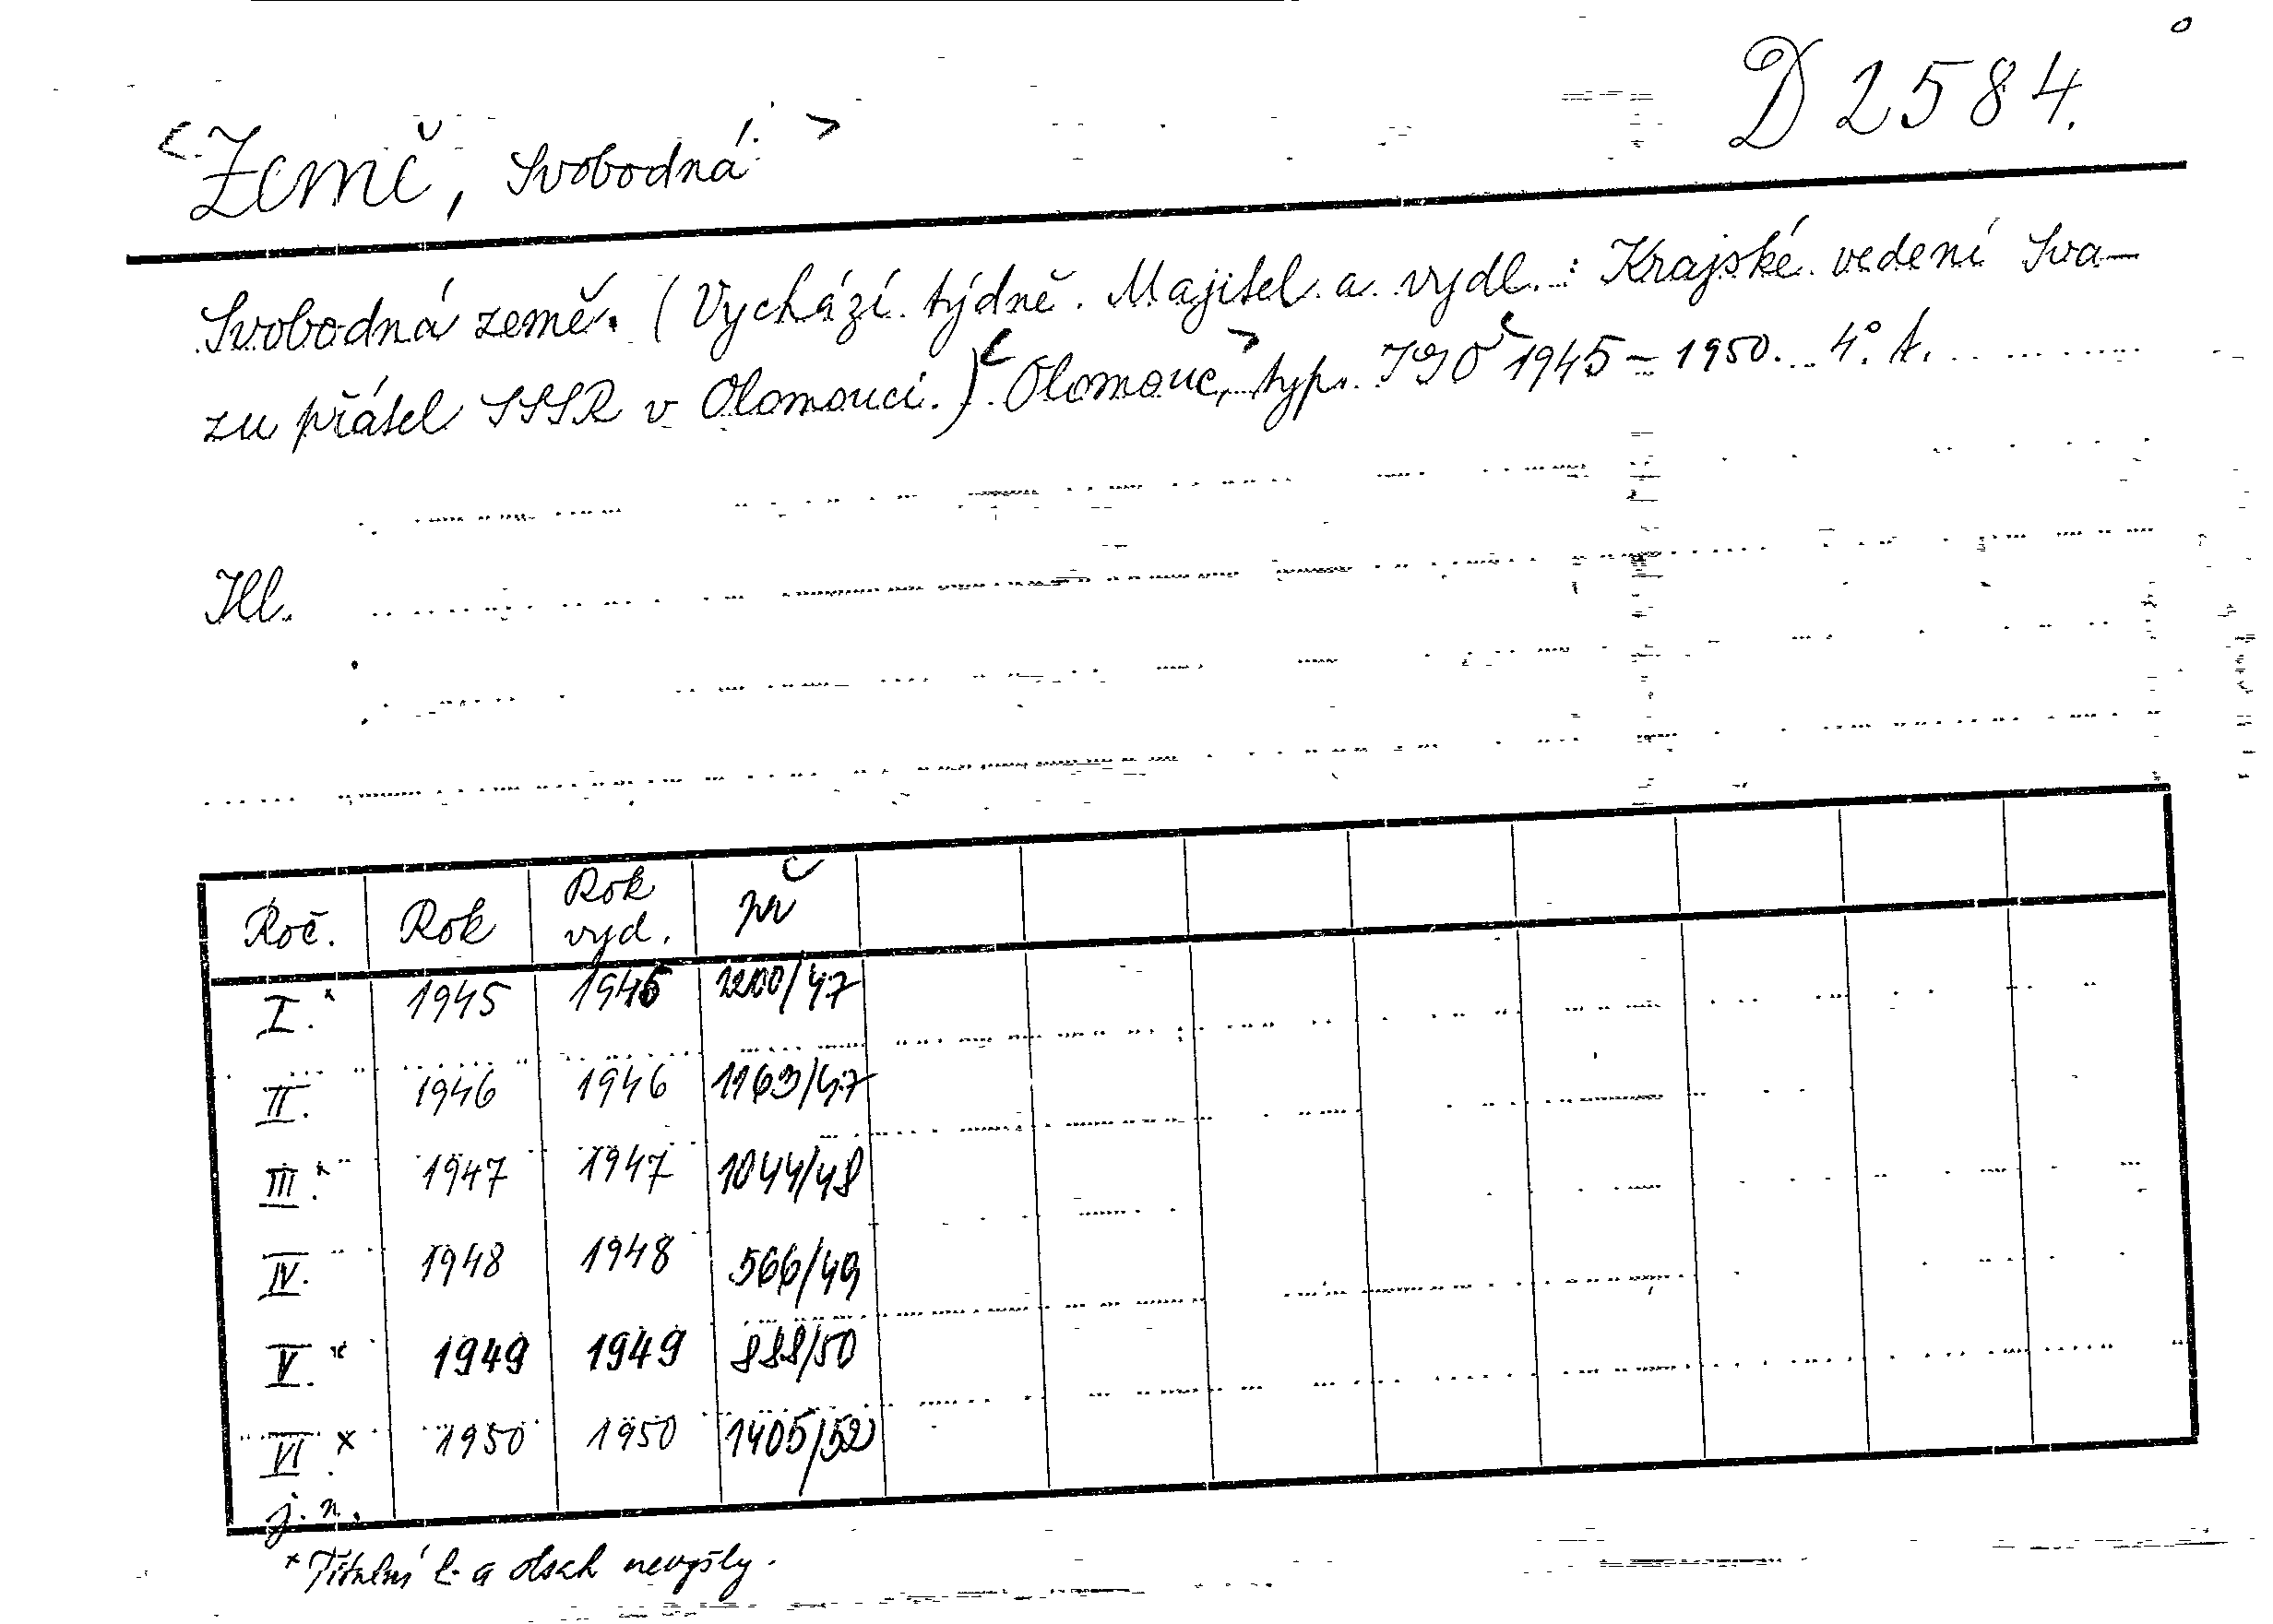 D 2584.
<Země, Svobodná>
Svobodná země. (Vychází týdně. Majitel a vydl.: Krajské vedení Sva-
zu přátel SSSR v Olomouci.) <Olomouc,> typ. <1945-1950. 4°. A.
Ill.
Roč. Rok Rok vyd. př
I.* 1945 1945 1200/47
II. 1946 1946 1163/47
III.* 1947 1947 1044/48
IV. 1948 1948 566/49
V.* 1949 1949 888/50
VI.x 1950 1950 1405/52
j. n.
* Titulní l. a obsah nevyšly.